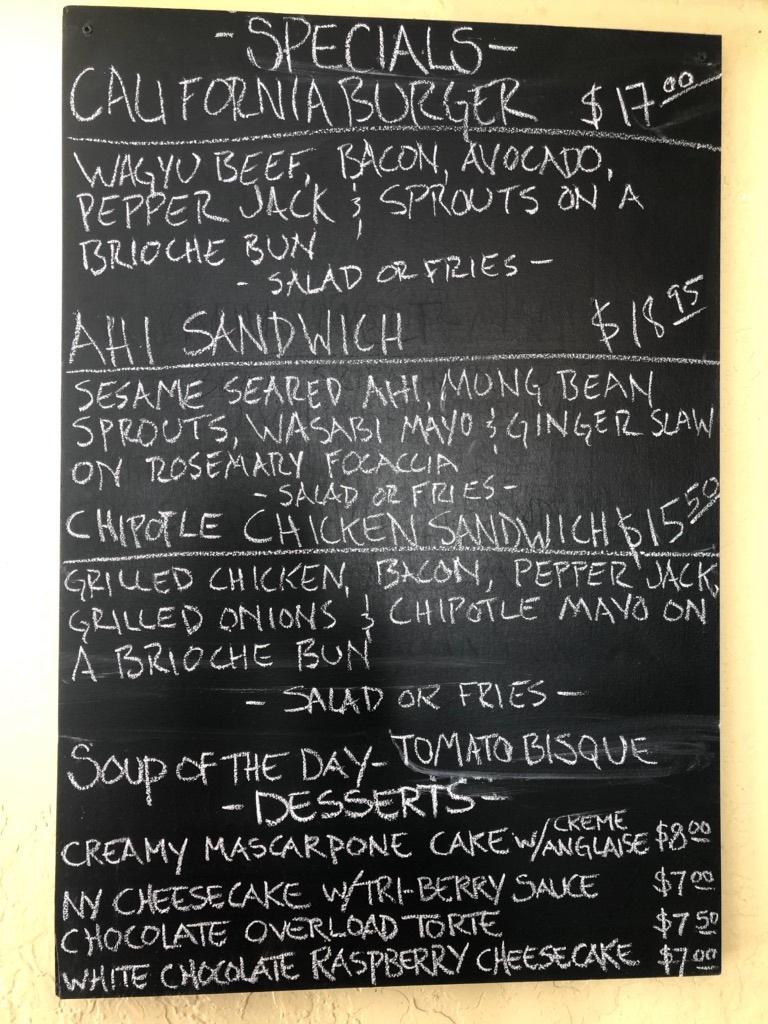 -SPECIALS-
CALIFORNIA BURGER $17.00
WAGYU BEEF, BACON, AVOCADO,
PEPPER JACK & SPROUTS ON A
BRIOCHE BUN
- SALAD OR FRIES -
AHI SANDWICH $18.95
SESAME SEARED AHI, MUNG BEAN
SPROUTS, WASABI MAYO & GINGER SLAW
ON ROSEMARY FOCACCIA
- SALAD OR FRIES -
CHIPOTLE CHICKEN SANDWICH $15.50
GRILLED CHICKEN, BACON, PEPPER JACK,
GRILLED ONIONS & CHIPOTLE MAYO ON
A BRIOCHE BUN
- SALAD OR FRIES -
SOUP OF THE DAY- TOMATO BISQUE
-DESSERTS-
CREAMY MASCARPONE CAKE W/ CREME ANGLAISE $8.00
NY CHEESECAKE W/TRI-BERRY SAUCE $7.00
CHOCOLATE OVERLOAD TORTE $7.50
WHITE CHOCOLATE RASPBERRY CHEESECAKE $7.00